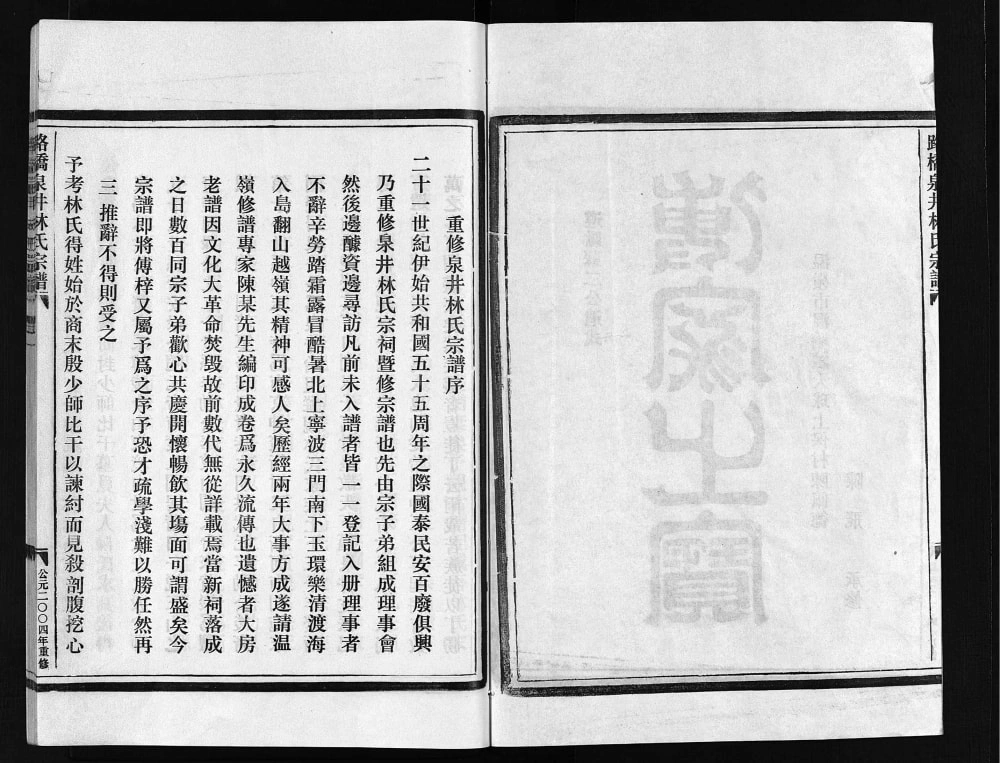 路橋泉井林氏宗譜
重修泉井林氏宗譜序
二十一世紀伊始共和國五十五周年之際國泰民安百廢俱興
乃重修泉井林氏宗祠暨修宗譜也先由宗子弟組成理事會
然後邊醵資邊尋訪凡前未入譜者皆一一登記入册理事者
不辭辛勞踏霜露冒酷暑北上寧波三門南下玉環樂清渡海
入島翻山越嶺其精神可感人矣歷經兩年大事方成遂請温
嶺修譜專家陳某先生編印成卷爲永久流傳也遺憾者大房
老譜因文化大革命焚毀故前數代無從詳載焉當新祠落成
之日數百同宗子弟歡心共慶開懷暢飲其塲面可謂盛矣今
宗譜即將傅梓又屬予爲之序予恐才疏學淺難以勝任然再
三推辭不得則受之
予考林氏得姓始於商末殷少師比干以諫紂而見殺剖腹挖心
路橋泉井林氏宗譜
公元二〇〇四年重修